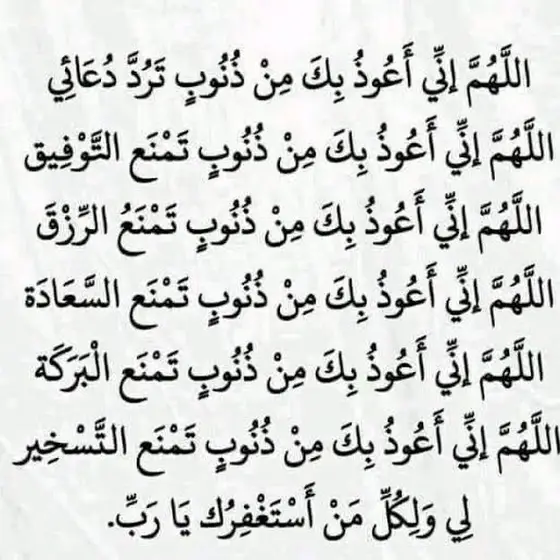 اللَّهُمَّ إنِّي أَعُوذُ بِكَ مِنْ ذُنُوبٍ تَرُدَّ دُعَائِي
اللَّهُمَّ إنِّي أَعُوذُ بِكَ مِنْ ذُنُوبٍ تَمْنَع التَّوْفِيق
اللَّهُمَّ إنِّي أَعُوذُ بِكَ مِنْ ذُنُوبٍ تَمْنَعُ الرِّزْقَ
اللَّهُمَّ إنِّي أَعُوذُ بِكَ مِنْ ذُنُوبٍ تَمْنَع السَّعَادَة
اللَّهُمَّ إنِّي أَعُوذُ بِكَ مِنْ ذُنُوبٍ تَمْنَع الْبَرَكَة
اللَّهُمَّ إنِّي أَعُوذُ بِكَ مِنْ ذُنُوبٍ تَمْنَع التَّسْخِير
لِي وَلِكُلِّ مَنْ أَسْتَغْفِرُك يَا رَبِّ.